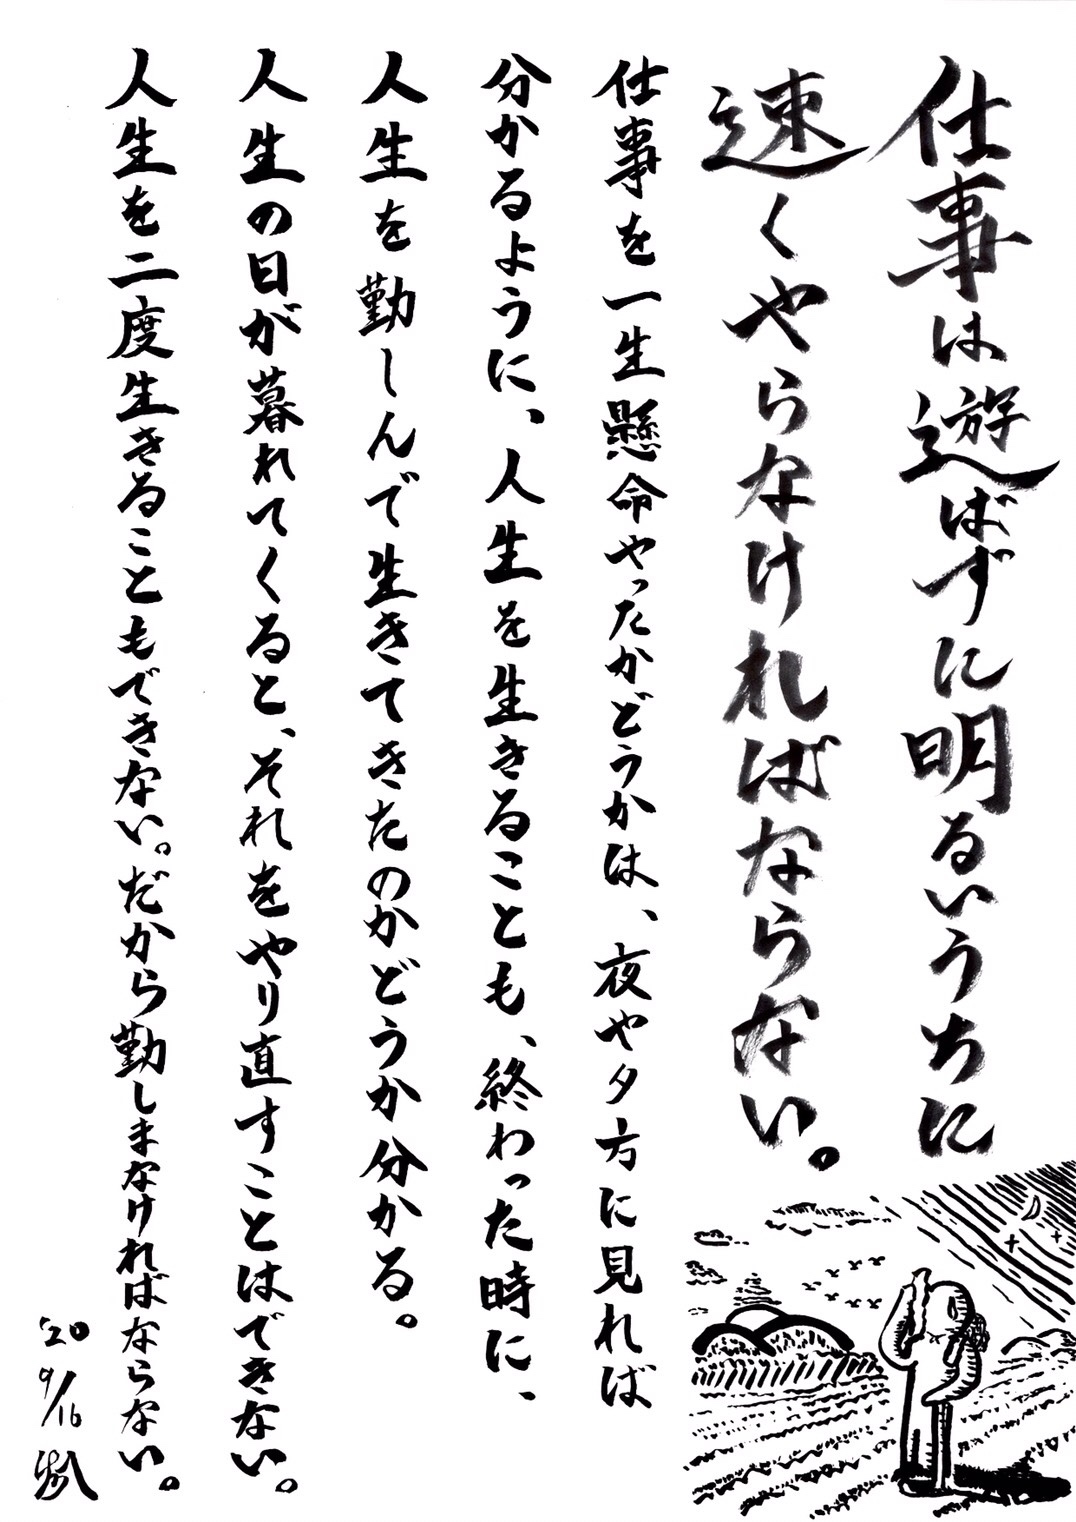 仕事は遊ばずに明るいうちに
速くやらなければならない。
仕事を一生懸命やったかどうかは、夜や夕方に見れば
分かるように、人生を生きることも、終わった時に、
人生を勤しんで生きてきたのかどうか分かる。
人生の日が暮れてくると、それをやり直すことはできない。
人生を二度生きることもできない。だから勤しまなければならない。
'20 9/16